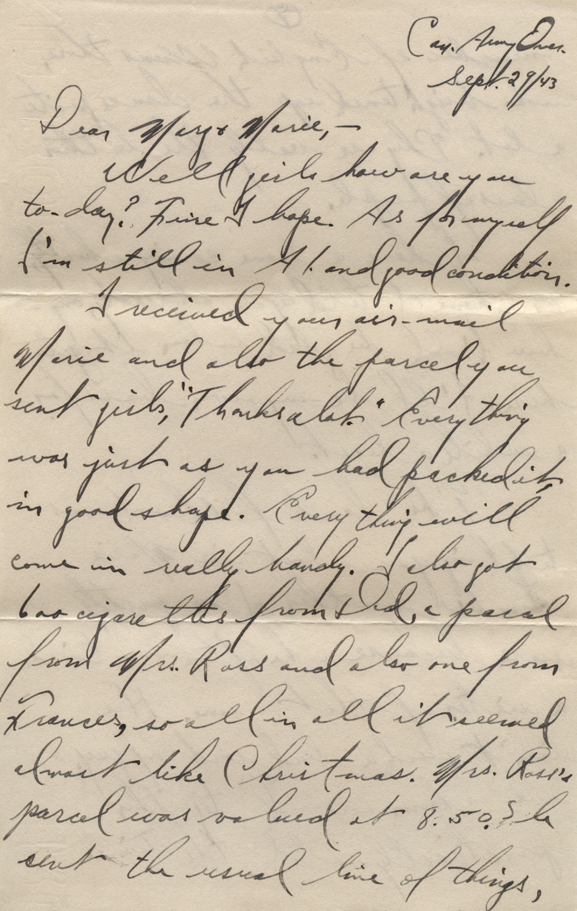 Can. Army Overs.
Sept. 29/43
Dear Mary & Marie,—
Well girls how are you
to-day? Fine I hope. As for myself
I'm still in A1. and good condition.
I received your air-mail
Marie and also the parcel you
sent girls, "Thanks a lot." Everything
was just as you had packed it,
in good shape. Everything will
come in really handy. I also got
600 cigarettes from Dad, a parcel
from Mrs. Ross and also one from
Frances, so all in all it seemed
almost like Christmas. Mrs. Ross's
parcel was valued at 8.50. She
sent the usual line of things,